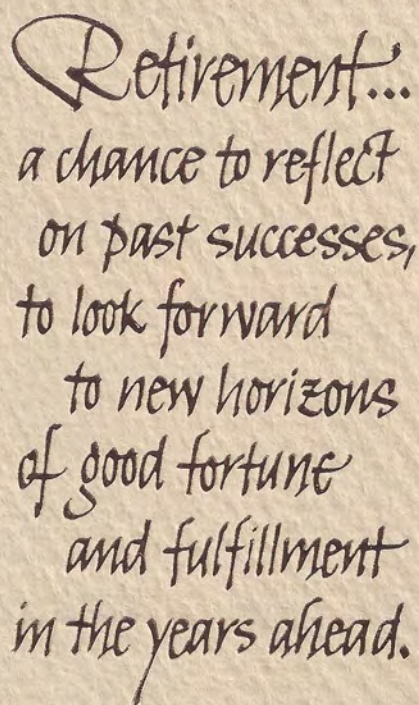 Retirement...
a chance to reflect
on past successes,
to look forward
to new horizons
of good fortune
and fulfillment
in the years ahead.